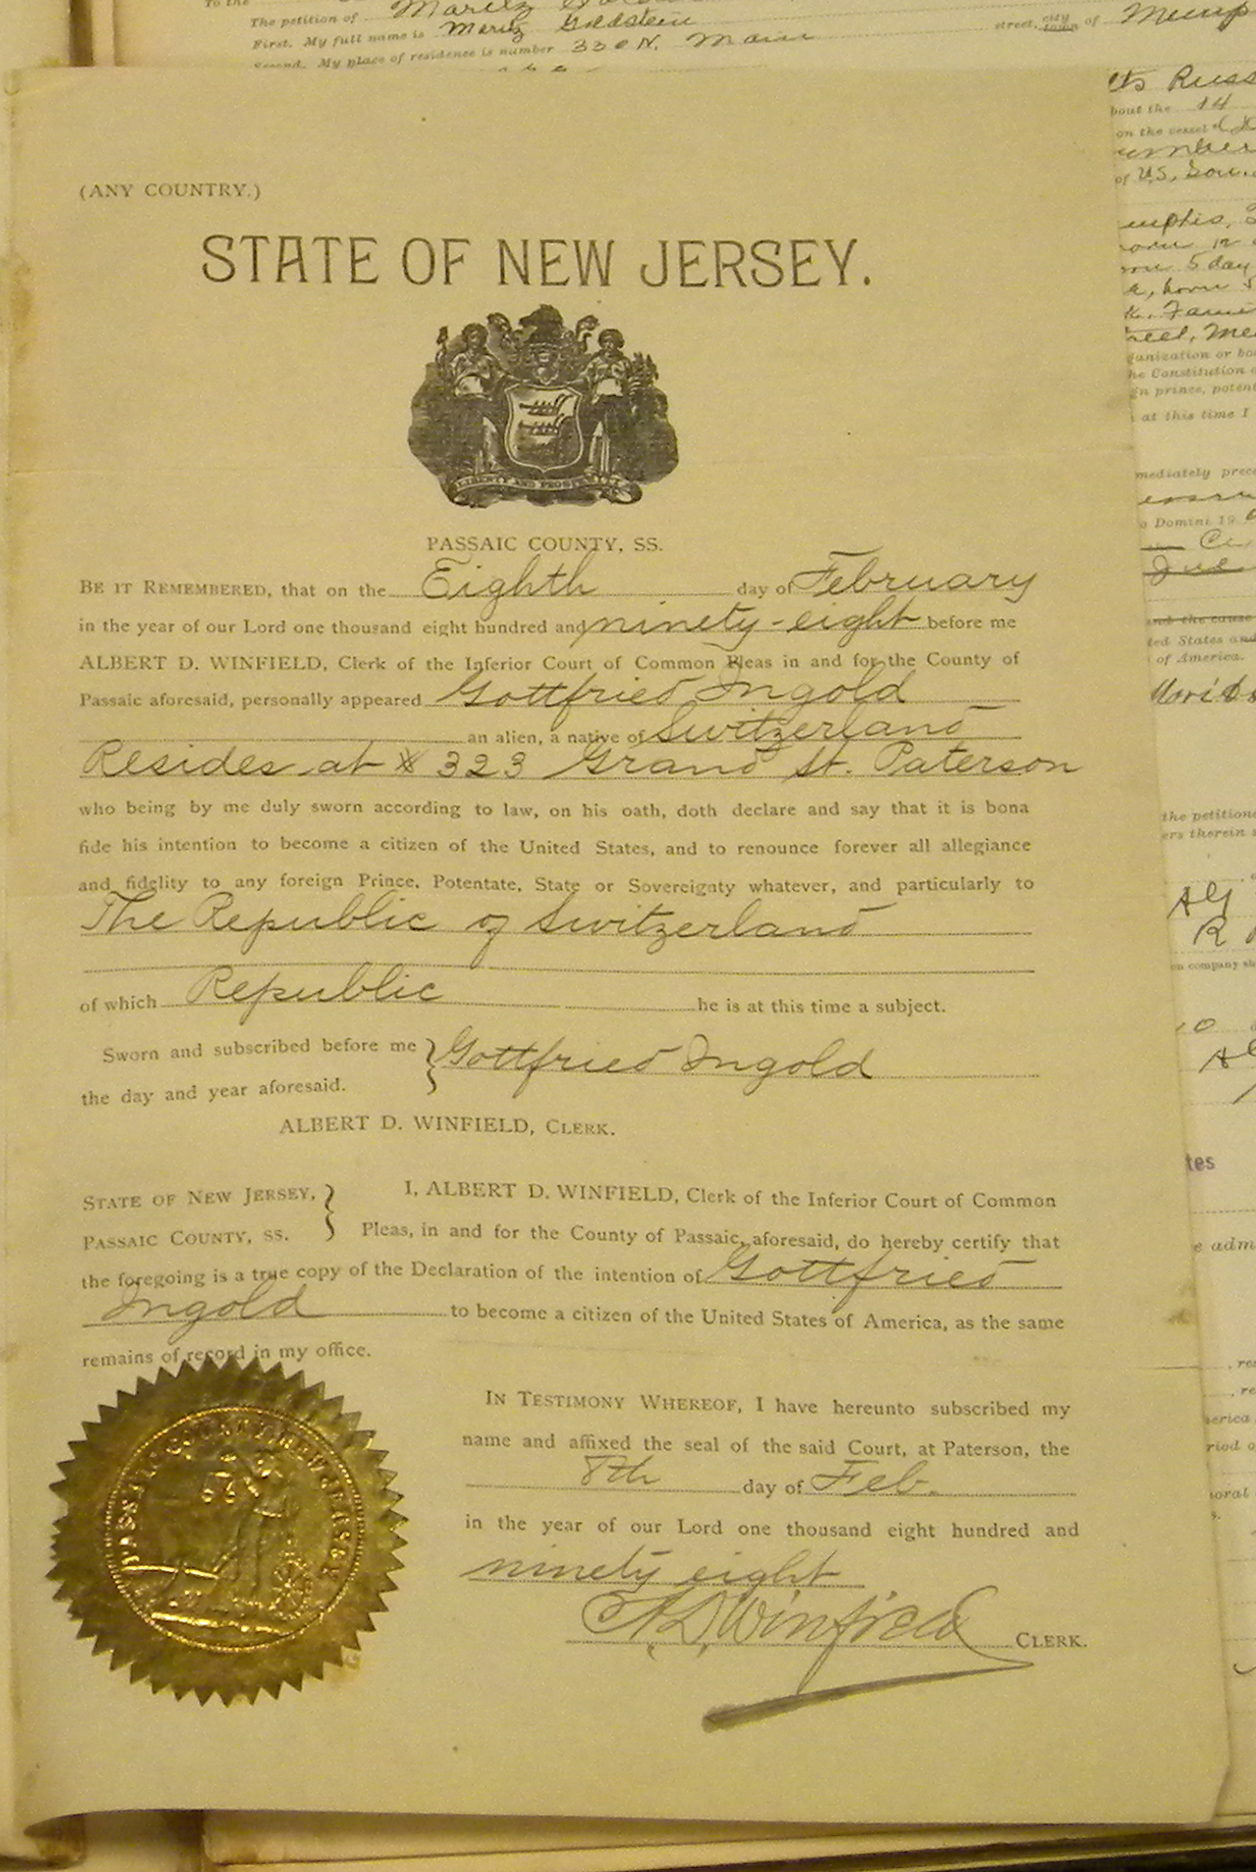 To the
The petition of Moritz
First. My full name is Moritz Goldstein
Second. My place of residence is number 330 N. Main street, city town of Memp
(ANY COUNTRY.)
STATE OF NEW JERSEY.
LIBERTY AND PROSPERITY
PASSAIC COUNTY, SS.
BE IT REMEMBERED, that on the Eighth day of February
in the year of our Lord one thousand eight hundred and ninety-eight before me
ALBERT D. WINFIELD, Clerk of the Inferior Court of Common Pleas in and for the County of
Passaic aforesaid, personally appeared Gottfried Ingold
an alien, a native of Switzerland
Resides at # 323 Grand St. Paterson
who being by me duly sworn according to law, on his oath, doth declare and say that it is bona
fide his intention to become a citizen of the United States, and to renounce forever all allegiance
and fidelity to any foreign Prince, Potentate, State or Sovereignty whatever, and particularly to
The Republic of Switzerland
of which Republic he is at this time a subject.
Sworn and subscribed before me } Gottfried Ingold
the day and year aforesaid.
ALBERT D. WINFIELD, CLERK.
STATE OF NEW JERSEY, } I, ALBERT D. WINFIELD, Clerk of the Inferior Court of Common
PASSAIC COUNTY, SS. Pleas, in and for the County of Passaic, aforesaid, do hereby certify that
the foregoing is a true copy of the Declaration of the intention of Gottfried
Ingold to become a citizen of the United States of America, as the same
remains of record in my office.
IN TESTIMONY WHEREOF, I have hereunto subscribed my
name and affixed the seal of the said Court, at Paterson, the
8th day of Feb.
in the year of our Lord one thousand eight hundred and
ninety eight
A. D. Winfield CLERK.
PASSAIC COUNTY NEW JERSEY
Russ
bout the 14
on the vessel
of U.S. Gov.
emphis,
5 day
born
reet, Me
ganization or bo
he Constitution
gn prince, potent
at this time I
mediately prec
o Domini 19
and the cause
ted States and
of America.
Morits
the petition
ers therein s
on company sh
tes
e adm
, re
, re
merica
riod o
oral
s.